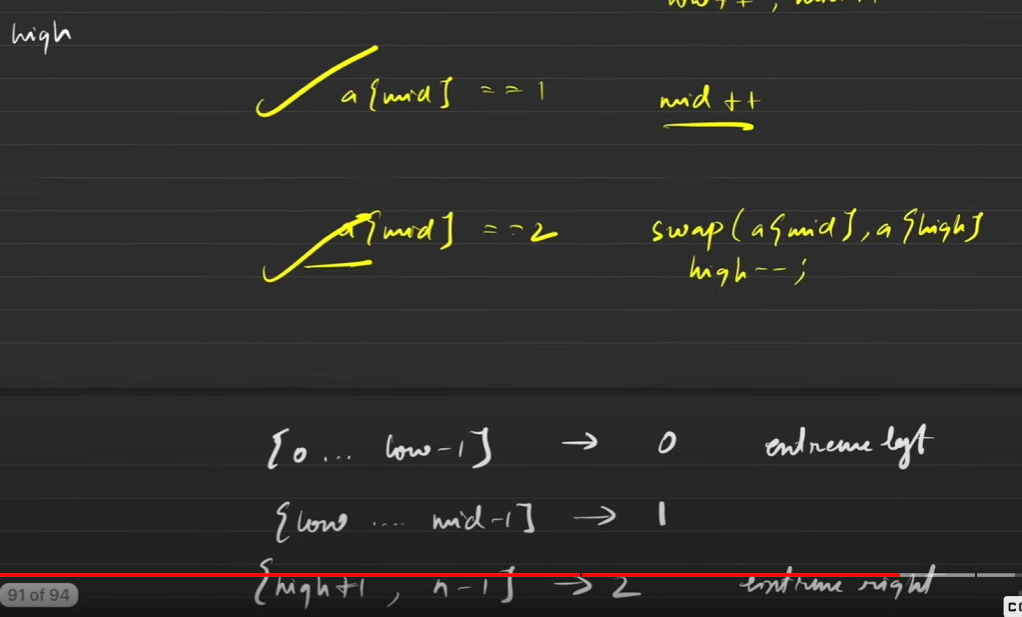 high
a[mid] == 1 mid ++
a[mid] == 2 swap(a[mid], a[high]
high--;
[0 ... low-1] → 0 extreme left
[low .... mid-1] → 1
[high+1 , n-1] → 2 extreme right
91 of 94